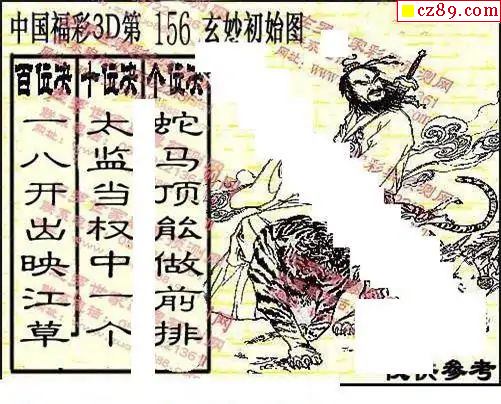 cz89.com
中国福彩3D第 156 玄妙初始图
百位决 十位决 个位决
一八开出映江草
太监当权中一个
蛇马顶能做前排
参考